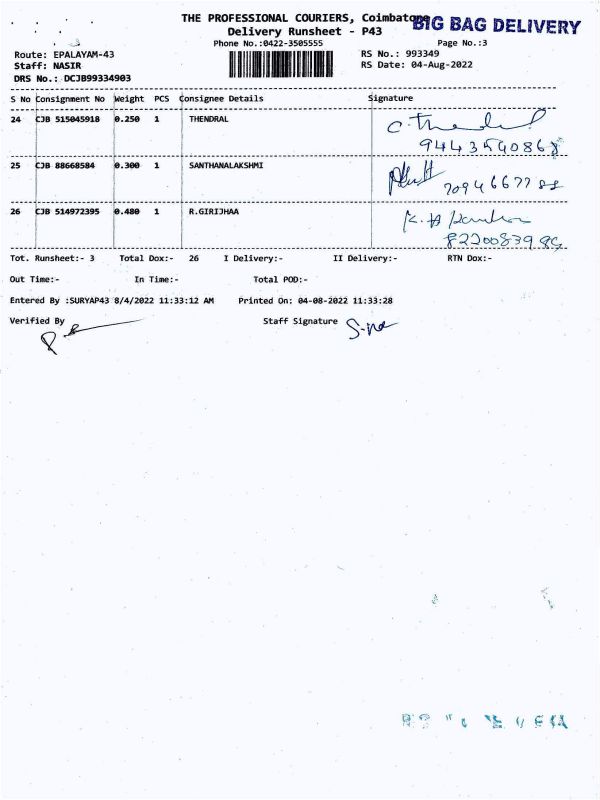 THE PROFESSIONAL COURIERS, Coimbatore
BIG BAG DELIVERY
Delivery Runsheet - P43
Phone No.:0422-3505555
Page No.:3
Route: EPALAYAM-43
RS No.: 993349
Staff: NASIR
RS Date: 04-Aug-2022
DRS No.: DCJB99334903
S No Consignment No Weight PCS Consignee Details Signature
24 CJB 515045918 0.250 1 THENDRAL
25 CJB 88668584 0.300 1 SANTHANALAKSHMI
26 CJB 514972395 0.480 1 R.GIRIJHAA
Tot. Runsheet:- 3 Total Dox:- 26 I Delivery:- II Delivery:- RTN Dox:-
Out Time:- In Time:- Total POD:-
Entered By :SURYAP43 8/4/2022 11:33:12 AM Printed On: 04-08-2022 11:33:28
Verified By Staff Signature